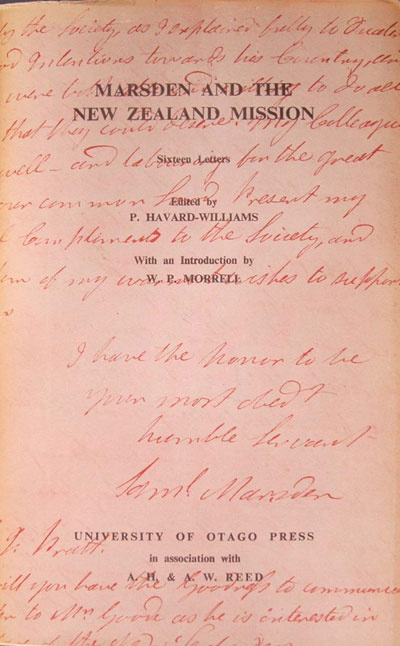 by the Society, as I explained fully to
Intentions towards his Country,
were
MARSDEN AND THE
to do all
NEW ZEALAND MISSION
that they could My Colleague
Sixteen Letters
well – and labouring for the great
Edited by
our common Lord. Present my
P. HAVARD-WILLIAMS
Compliments to the Society, and
With an Introduction by
of my wishes to support
W. P. MORRELL
I have the honor to be
your most obedt
humble Servant
Saml Marsden
UNIVERSITY OF OTAGO PRESS
Pratt.
in association with
will you have the Goodness to communicate
A. H. & A. W. REED
to Mr Good as he is interested in
of the